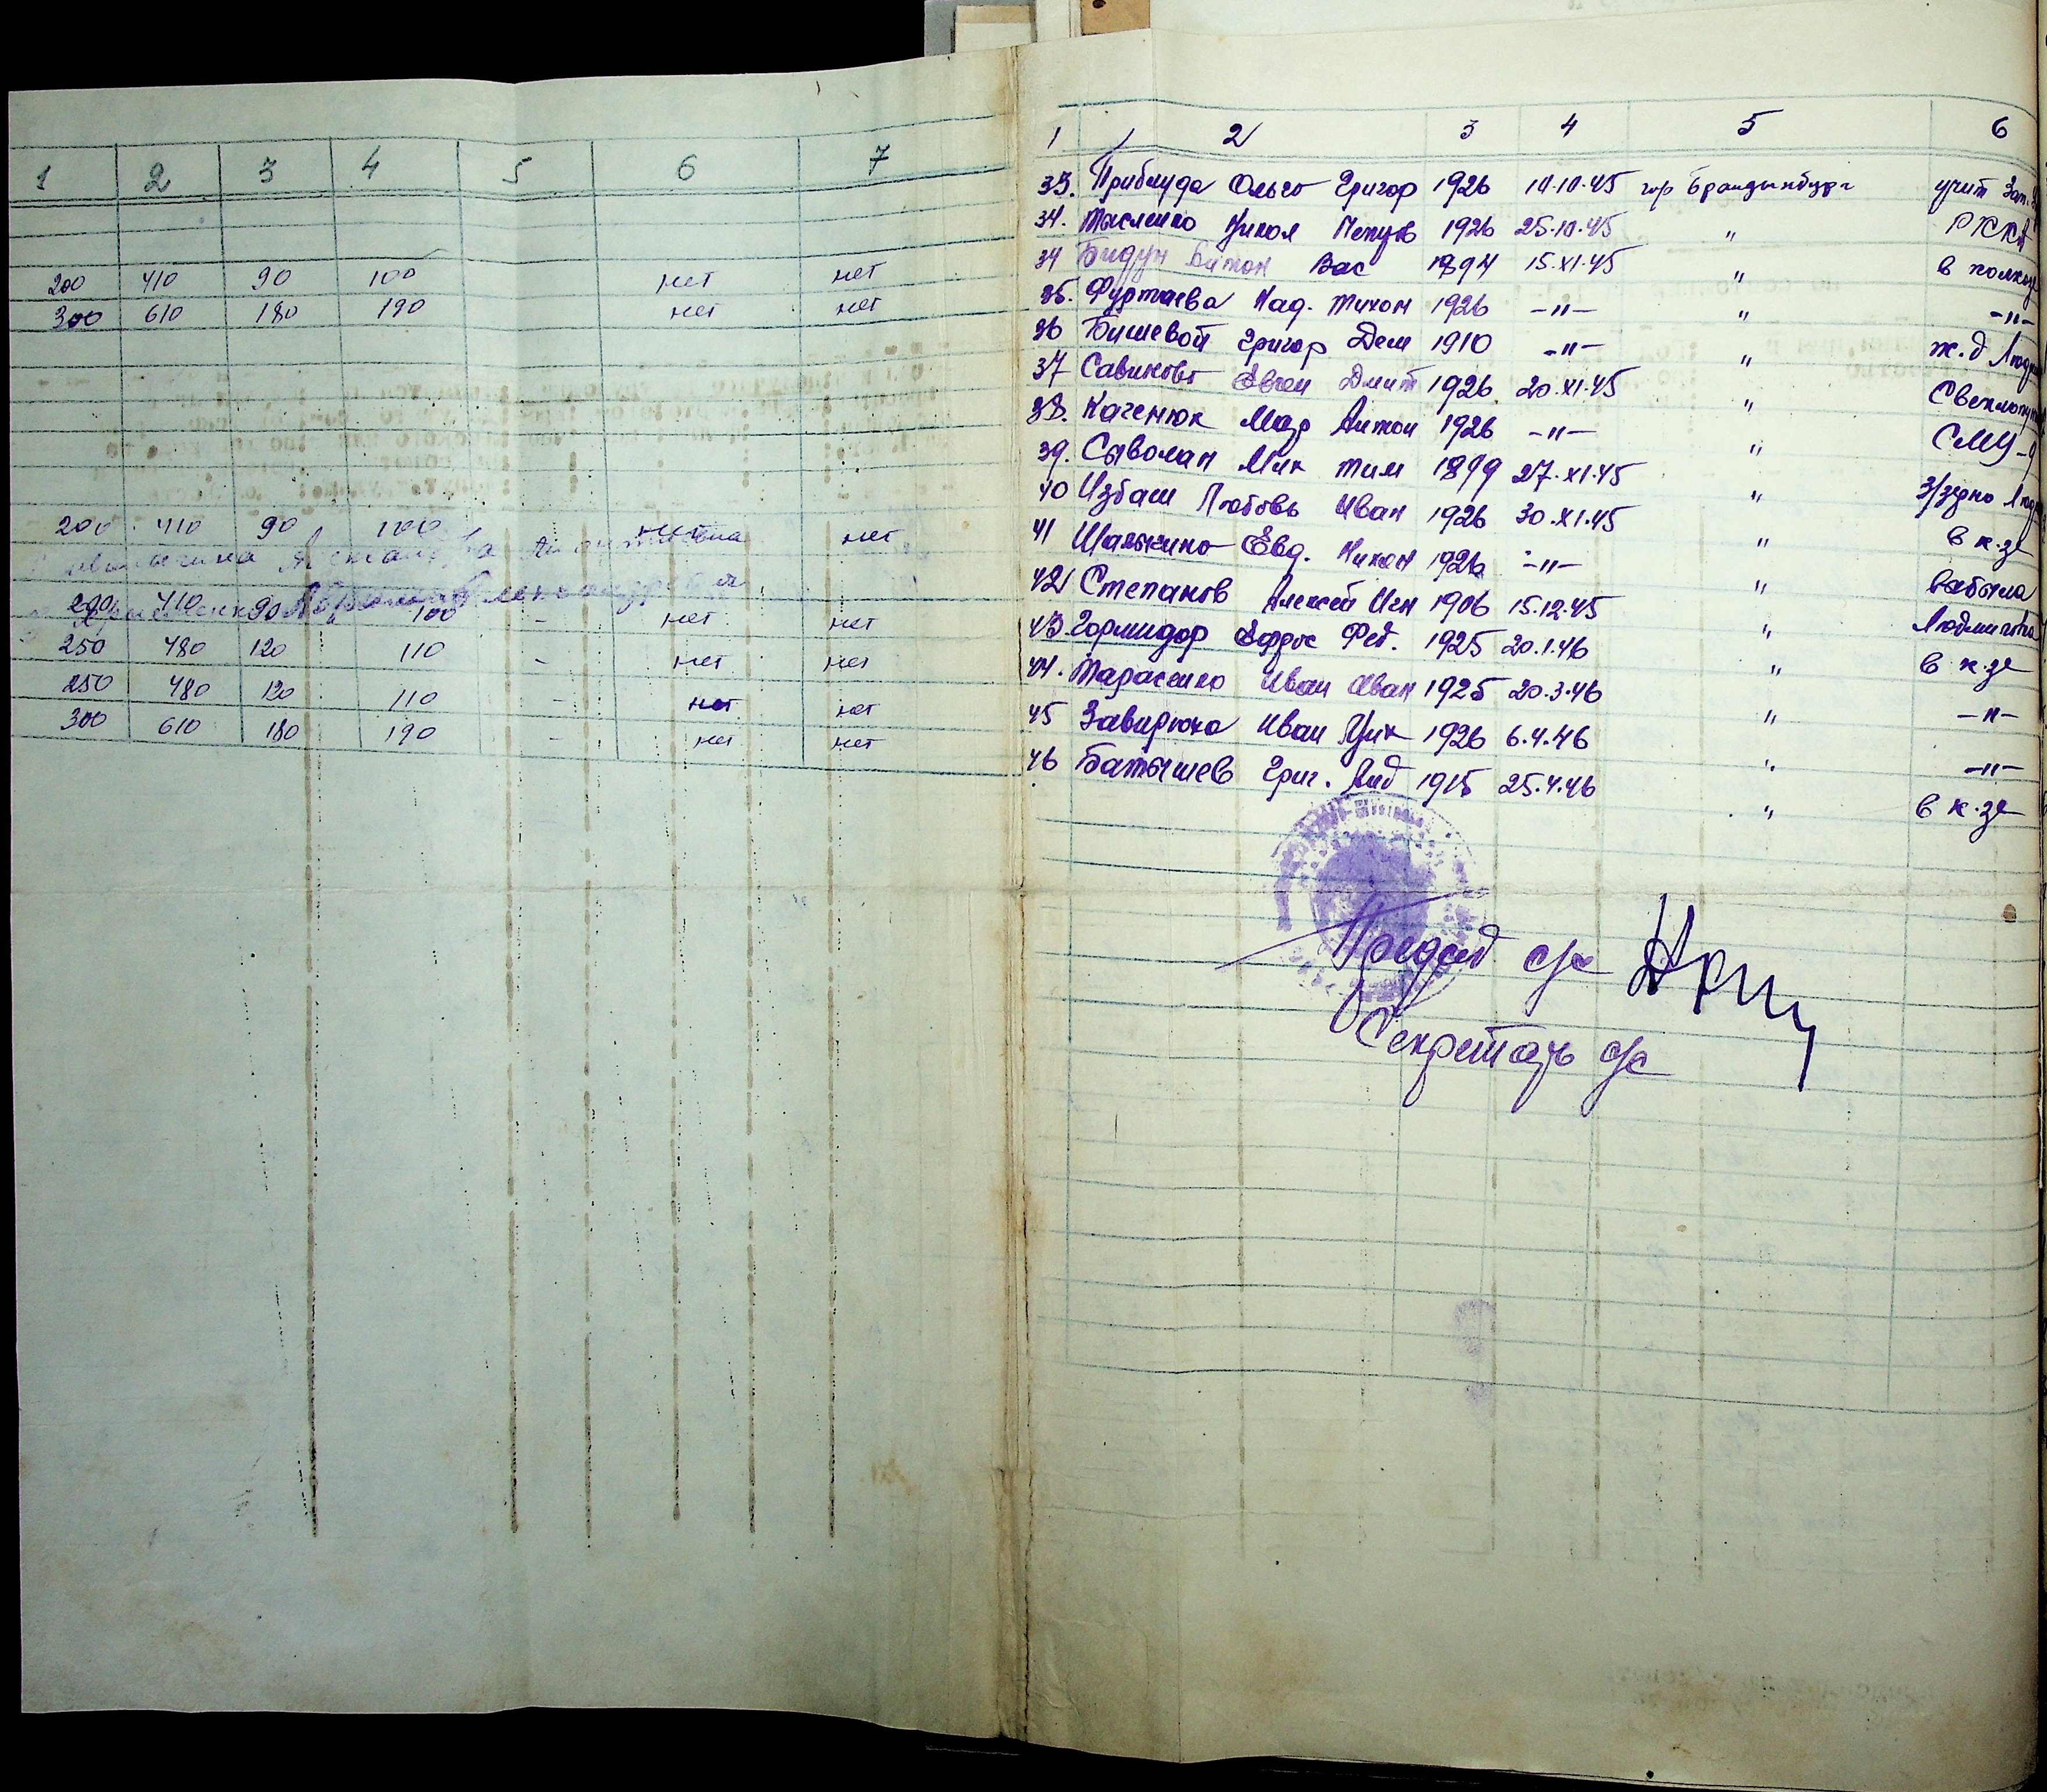 1 2 3 4 5 6 7
200 410 90 100 нет нет
300 610 180 190 нет нет
200 410 90 100 нет нет
200 410 90 100 - нет нет
250 480 120 110 - нет нет
250 480 120 110 - нет нет
300 610 180 190 - нет нет
1 2 3 4 5 6
33. Приблуда Ольга Григор 1926 10.10.45 гор Бранденбург учит
34. Тысленко 1926 25.10.45 " РККА
34 Бидун Антон Вас 1894 15.XI.45 " в колхозе
35. Фуртаева Над. Тихон 1926 -"- " -"-
36 Бишевой Григор Дем 1910 -"- " ж.д
37 Савикова Евген Дмит 1926 20.XI.45 "
38. Каченюк Мар Антон 1926 -"- " СМУ-9
39. Сыволап Мик Тим 1899 27.XI.45 "
40 Избаш Любовь Иван 1926 30.XI.45 " в к-зе
41 Шалыкина Евд. Никон 1926 -"- "
42 Степанов Алексей Игн 1906 15.12.45 "
43. Гормидор Ефрос Фед. 1925 20.1.46 " в к-зе
44. Тарасенко Иван Иван 1925 20.3.46 " -"-
45 Завирюха Иван 1926 6.4.46 " -"-
46 Батышев Григ. 1915 25.4.46 " в к-зе
Председ с/с
Секретарь с/с